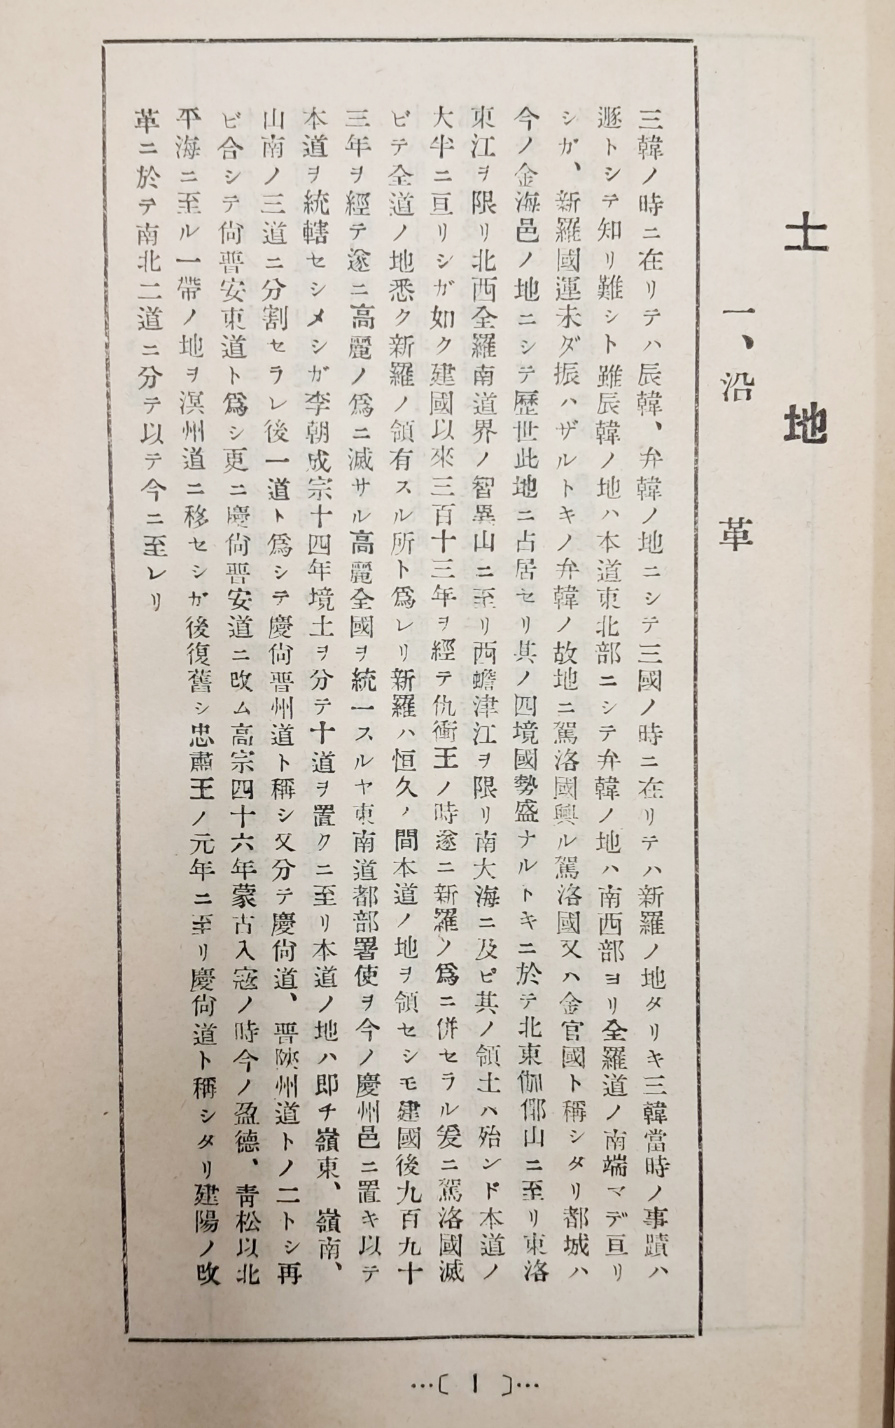 土地
一、沿革
三韓ノ時ニ在リテハ辰韓、弁韓ノ地ニシテ三國ノ時ニ在リテハ新羅ノ地タリキ三韓當時ノ事蹟ハ
遯トシテ知リ難シト雖辰韓ノ地ハ本道東北部ニシテ弁韓ノ地ハ南西部ヨリ全羅道ノ南端マデ亘リ
シガ、新羅國運未ダ振ハザルトキノ弁韓ノ故地ニ駕洛國興ル駕洛國又ハ金官國ト稱シタリ都城ハ
今ノ金海邑ノ地ニシテ歷世此地ニ占居セリ其ノ四境國勢盛ナルトキニ於テ北東伽倻山ニ至リ東洛
東江ヲ限リ北西全羅南道界ノ智異山ニ至リ西蟾津江ヲ限リ南大海ニ及ビ其ノ領土ハ殆ンド本道ノ
大半ニ亘リシガ如ク建國以來三百十三年ヲ經テ仇衝王ノ時遂ニ新羅ノ爲ニ併セラル爰ニ駕洛國滅
ビテ全道ノ地悉ク新羅ノ領有スル所ト爲レリ新羅ハ恒久ノ間本道ノ地ヲ領セシモ建國後九百九十
三年ヲ經テ遂ニ高麗ノ爲ニ滅サル高麗全國ヲ統一スルヤ東南道都部署使ヲ今ノ慶州邑ニ置キ以テ
本道ヲ統轄セシメシガ李朝成宗十四年境土ヲ分テ十道ヲ置クニ至リ本道ノ地ハ即チ嶺東、嶺南、
山南ノ三道ニ分割セラレ後一道ト爲シテ慶尙晋州道ト稱シ又分テ慶尙道、晋陜州道トノ二トシ再
ビ合シテ尙晋安東道ト爲シ更ニ慶尙晋安道ニ改ム高宗四十六年蒙古入寇ノ時今ノ盈德、靑松以北
平海ニ至ル一帶ノ地ヲ溟州道ニ移セシガ後復舊シ忠肅王ノ元年ニ至リ慶尙道ト稱シタリ建陽ノ改
革ニ於テ南北二道ニ分テ以テ今ニ至レリ
…〔 1 〕…